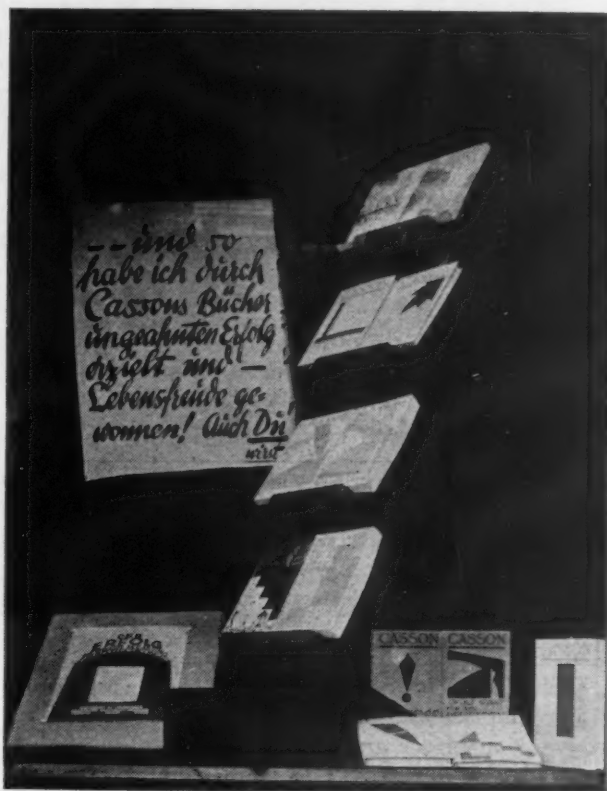 -- und so
habe ich durch
Cassons Bücher
ungeahnten Erfolg
erzielt und —
Lebensfreude ge-
wonnen! Auch Du
wirst
ERFOLG
CASSON CASSON